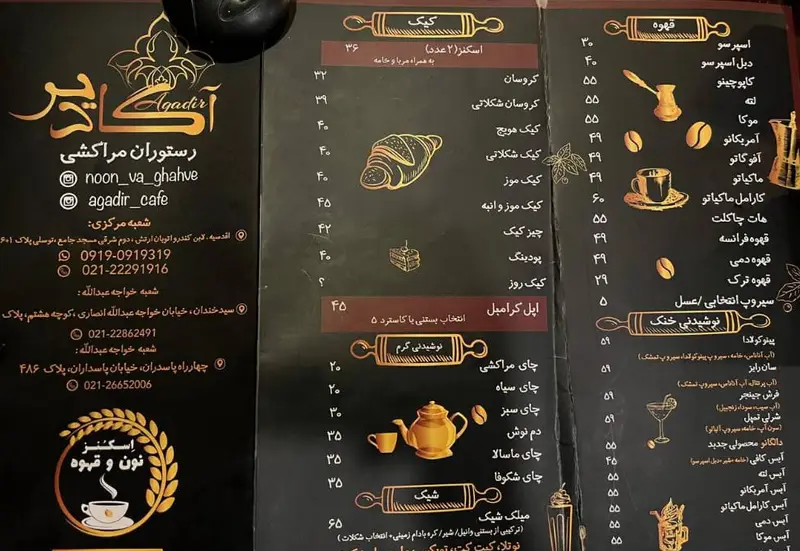 آگادیر
Agadir
رستوران مراکشی
noon_va_ghahve
agadir_cafe
شعبه مرکزی:
اقدسیه، لابن کندرو اتوبان ارتش، دوم شرقی مسجد جامع، توسلی پلاک
0919-0919319
021-22291916
شعبه خواجه عبدالله:
سیدخندان، خیابان خواجه عبدالله انصاری، کوچه هشتم، پلاک
021-22862491
شعبه خواجه عبدالله:
چهارراه پاسداران، خیابان پاسداران، پلاک ۴۸۶
021-26652006
اِسکُنز
نون و قهوه
کیک
اسکنز(۲عدد) ۳۶
به همراه مربا و خامه
کروسان ۳۲
کروسان شکلاتی ۳۹
کیک هویج ۴۰
کیک شکلاتی ۴۰
کیک موز ۴۰
کیک موز و انبه ۴۵
چیز کیک ۴۲
پودینگ ۴۰
کیک روز ؟
اپل کرامبل ۴۵
انتخاب بستنی یا کاسترد ۵
نوشیدنی گرم
چای مراکشی ۲۰
چای سیاه ۲۰
چای سبز ۳۰
دم نوش ۳۵
چای ماسالا ۳۵
چای شکوفا ۳۵
شیک
میلک شیک ۶۵
(ترکیبی از بستنی وانیل/ شیر/ کره بادام زمینی+ انتخاب شکلات)
نوتلا، کیت کت،
قهوه
اسپرسو ۳۰
دبل اسپرسو ۴۰
کاپوچینو ۵۵
لته ۵۵
موکا ۵۵
آمریکانو ۴۹
آفوگاتو ۴۹
ماکیاتو ۴۹
کارامل ماکیاتو ۶۰
هات چاکلت ۵۵
قهوه فرانسه ۴۹
قهوه دمی ۴۹
قهوه ترک ۲۹
سیروپ انتخابی /عسل ۵
نوشیدنی خنک
پینوکولادا ۵۹
(آب آناناس، خامه، سیروپ پینوکولادا، سیروپ تمشک)
سان رایز ۵۹
(آب پرتقال، آب آناناس، سیروپ تمشک)
فرش جینجر ۵۹
(آب سیب، سودا، زنجبیل)
شرلی تمپل ۵۹
(سون آپ، خامه، سیروپ آلبالو)
دالگانو محصولی جدید ۵۵
آیس کافی (خامه +شیر +دبل اسپرسو) ۵۵
آیس لته ۵۵
آیس آمریکانو ۵۵
آیس کارامل ماکیاتو ۵۵
آیس دمی ۵۵
آیس موکا ۵۵